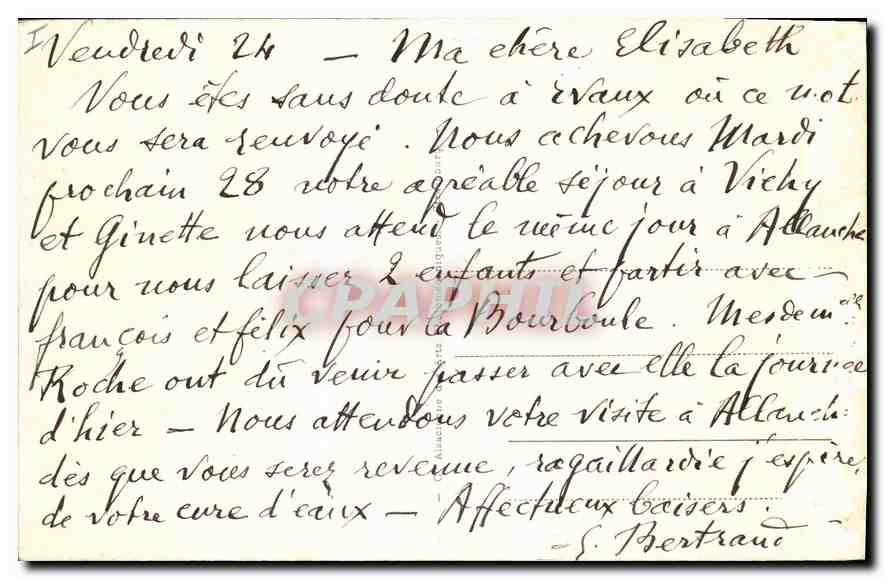 Vendredi 24 — Ma chère Elisabeth
Vous êtes sans doute à Evaux où ce mot
vous sera renvoyé. Nous achevons Mardi
prochain 28 notre agréable séjour à Vichy
et Ginette nous attend le même jour à Allanche
pour nous laisser 2 enfants et partir avec
françois et félix pour la Bourboule. Mesdem elles
Roche ont dû venir passer avec elle la journée
d'hier — Nous attendons votre visite à Allanche
dès que vous serez revenue, ragaillardie j'espère,
de votre cure d'eaux — Affectueux baisers.
Bertrand
CPAPHIL